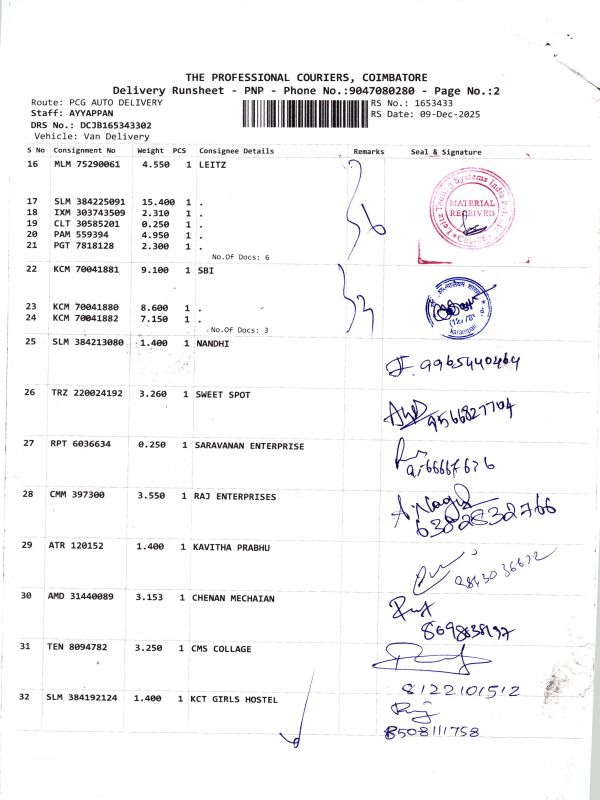 THE PROFESSIONAL COURIERS, COIMBATORE
Delivery Runsheet - PNP - Phone No.:9047080280 - Page No.:2
Route: PCG AUTO DELIVERY RS No.: 1653433
Staff: AYYAPPAN RS Date: 09-Dec-2025
DRS No.: DCJB165343302
Vehicle: Van Delivery
S No Consignment No Weight PCS Consignee Details Remarks Seal & Signature
16 MLM 75290061 4.550 1 LEITZ
Leitz Tooling Systems India Pvt.
MATERIAL
RECEIVED
17 SLM 384225091 15.400 1 .
18 IXM 303743509 2.310 1 .
19 CLT 30585201 0.250 1 .
20 PAM 559394 4.950 1 .
21 PGT 7818128 2.300 1 .
No.Of Docs: 6
6
22 KCM 70041881 9.100 1 SBI
23 KCM 70041880 8.600 1 .
24 KCM 70041882 7.150 1 .
No.Of Docs: 3
3
25 SLM 384213080 1.400 1 NANDHI
9965440464
26 TRZ 220024192 3.260 1 SWEET SPOT
9566827704
27 RPT 6036634 0.250 1 SARAVANAN ENTERPRISE
28 CMM 397300 3.550 1 RAJ ENTERPRISES
6382832766
29 ATR 120152 1.400 1 KAVITHA PRABHU
30 AMD 31440089 3.153 1 CHENAN MECHAIAN
31 TEN 8094782 3.250 1 CMS COLLAGE
8122101512
32 SLM 384192124 1.400 1 KCT GIRLS HOSTEL
8508111758